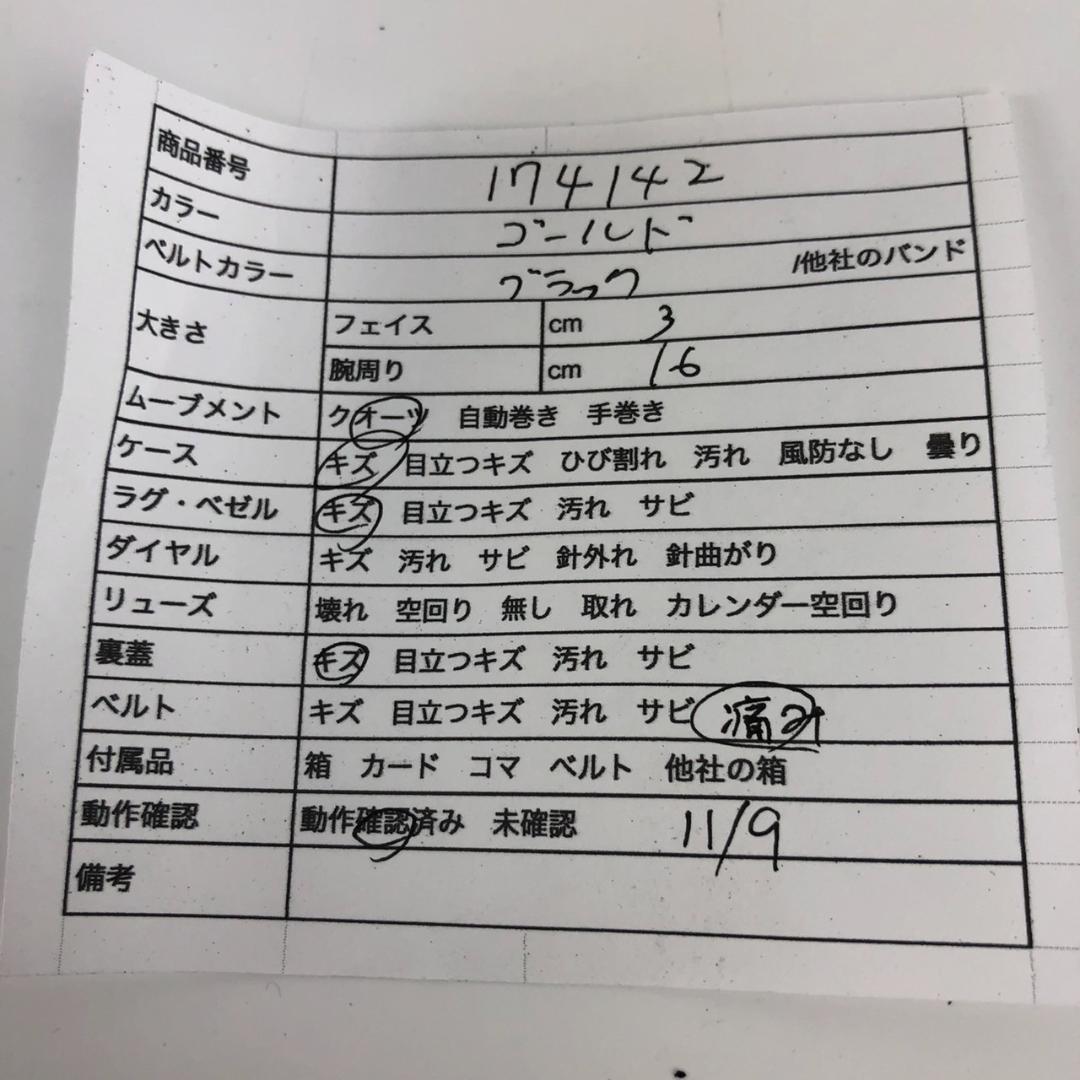 商品番号 174142
カラー ゴールド
ベルトカラー ブラック /他社のバンド
大きさ フェイス cm 3
腕周り cm 16
ムーブメント クオーツ 自動巻き 手巻き
ケース キズ 目立つキズ ひび割れ 汚れ 風防なし 曇り
ラグ・ベゼル キズ 目立つキズ 汚れ サビ
ダイヤル キズ 汚れ サビ 針外れ 針曲がり
リューズ 壊れ 空回り 無し 取れ カレンダー空回り
裏蓋 キズ 目立つキズ 汚れ サビ
ベルト キズ 目立つキズ 汚れ サビ 痛み
付属品 箱 カード コマ ベルト 他社の箱
動作確認 動作確認済み 未確認 11/9
備考